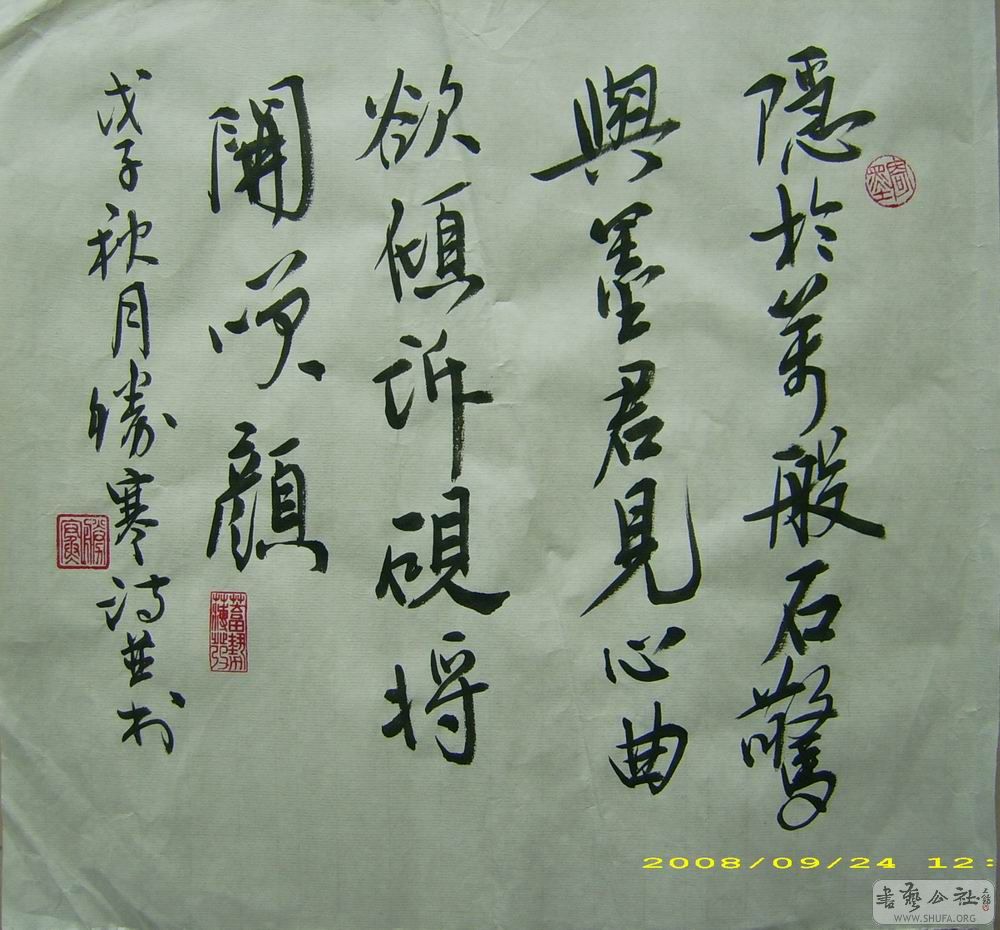 隱於萬般石驚
與墨君見心曲
欲傾訴硯將
開笑顔
戊子秋月勝寒詩並书
2008/09/24 12:
書藝公社
WWW.SHUFA.ORG